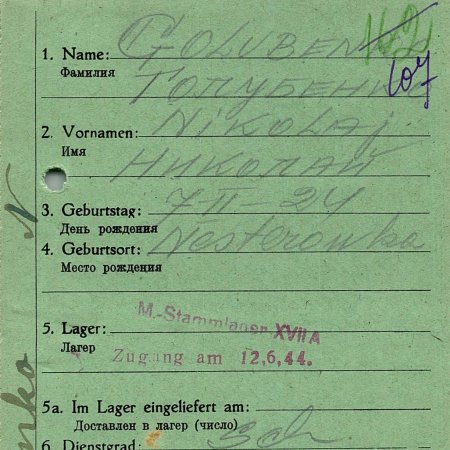 162
107
1. Name: GOLUBENKO
Фамилия ГОЛУБЕНКО
2. Vornamen: NIKOLAJ
Имя НИКОЛАЙ
3. Geburtstag: 7-II-24
День рождения
4. Geburtsort: Nesterowka
Место рождения
M.-Stammlager XVII A
5. Lager:
Лагер
Zugang am 12,6,44.
5a. Im Lager eingeliefert am:
Доставлен в лагер (число)
6. Dienstgrad: Sch.